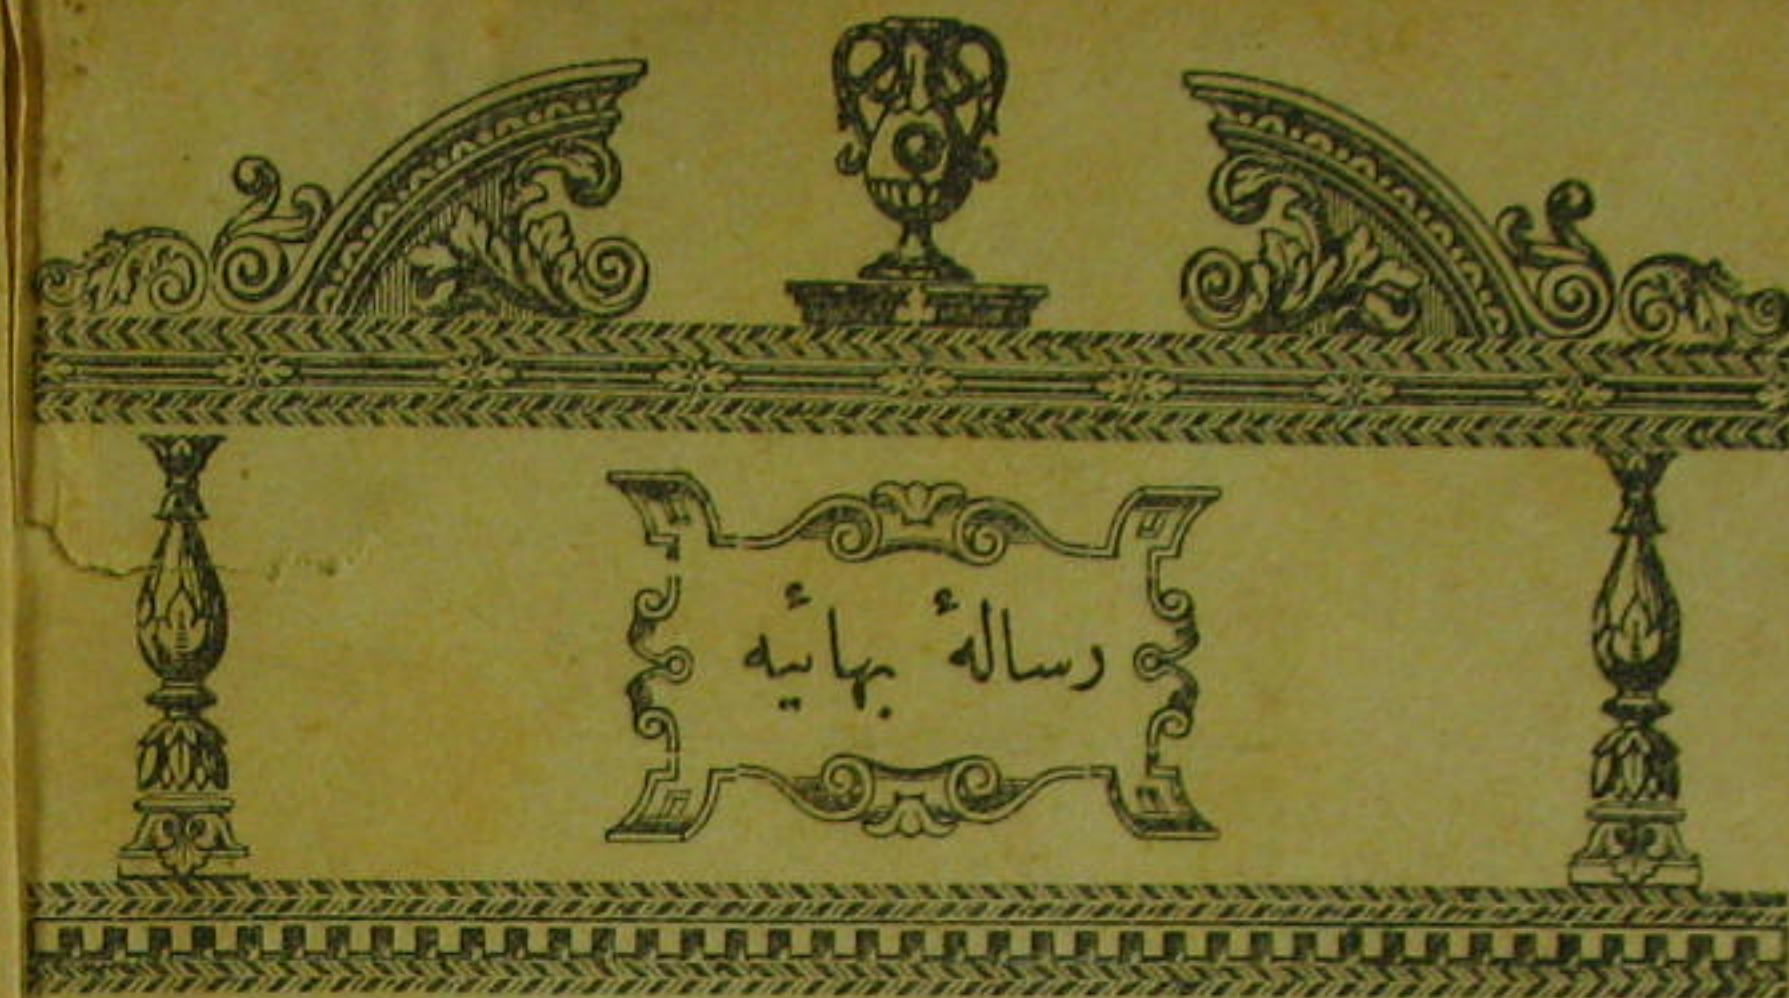 رسالهٔ بهائیه